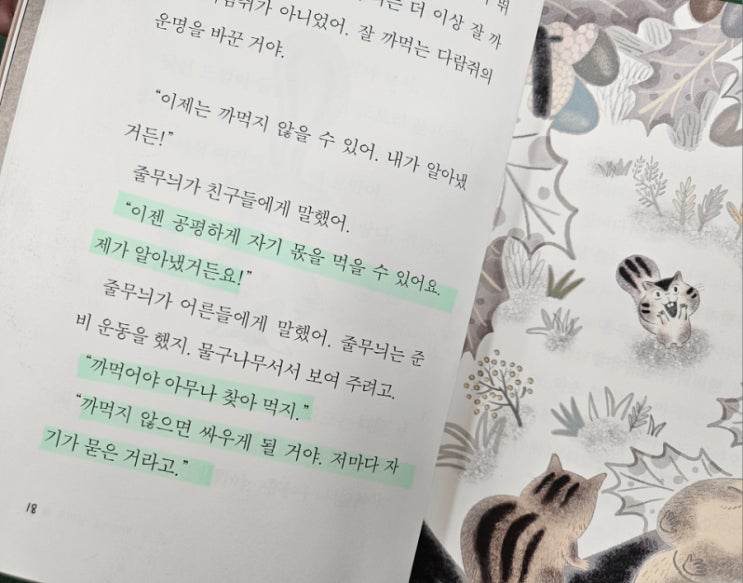 더 이상 잘 까
람쥐가 아니었어. 잘 까먹는 다람쥐의
운명을 바꾼 거야.
“이제는 까먹지 않을 수 있어. 내가 알아냈
거든!”
줄무늬가 친구들에게 말했어.
“이젠 공평하게 자기 몫을 먹을 수 있어요.
제가 알아냈거든요!”
줄무늬가 어른들에게 말했어. 줄무늬는 준
비 운동을 했지. 물구나무서서 보여 주려고.
“까먹어야 아무나 찾아 먹지.”
“까먹지 않으면 싸우게 될 거야. 저마다 자
기가 묻은 거라고.”
18